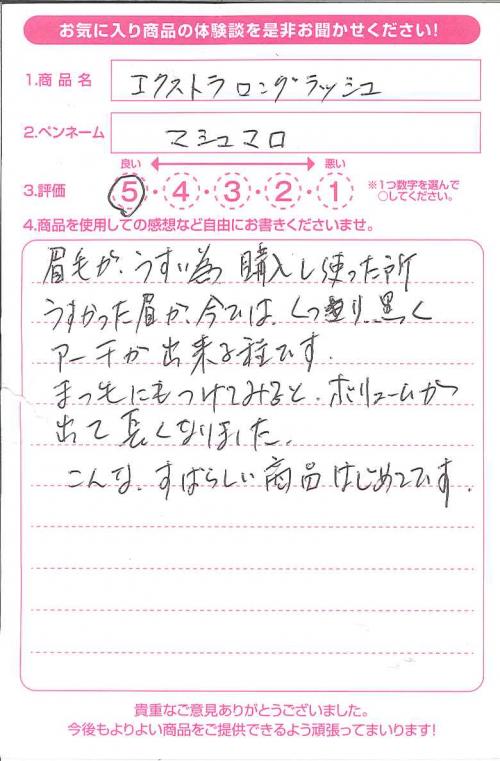 お気に入り商品の体験談を是非お聞かせください!
1.商品名 エクストラロングラッシュ
2.ペンネーム マシュマロ
良い 悪い
3.評価 5・4・3・2・1 ※1つ数字を選んで
○してください。
4.商品を使用しての感想など自由にお書きくださいませ。
眉毛が、うすい為 購入し使った所
うすかった眉が、今では、くっきり 黒く
アーチが出来る程です.
まつ毛にもつけてみると、ボリュームが
出て長くなりました.
こんな、すばらしい商品はじめてです.
貴重なご意見ありがとうございました。
今後もよりよい商品をご提供できるよう頑張ってまいります!